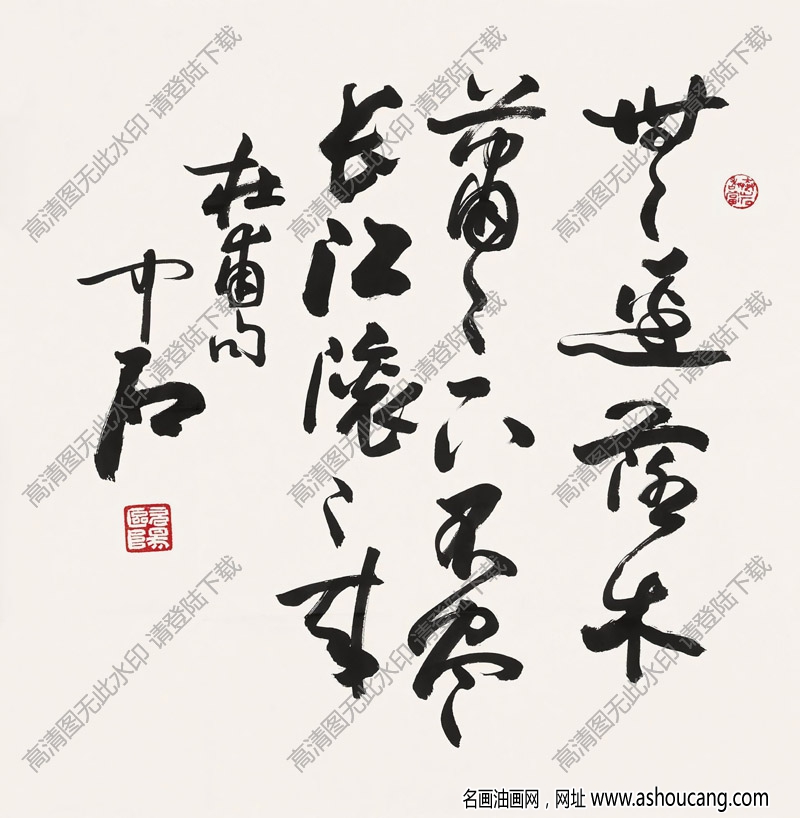 無邊落木
蕭〻下不盡
長江滾〻來
杜甫句
中石
高清图无此水印 请登陆下载
高清图无此水印 请登陆下载
高清图无此水印 请登陆下载
高清图无此水印 请登陆下载
高清图无此水印 请登陆下载
高清图无此水印 请登陆下载
高清图无此水印 请登陆下载
高清图无此水印 请登陆下载
高清图无此水印 请登陆下载
名画油画网，网址 www.ashoucang.com